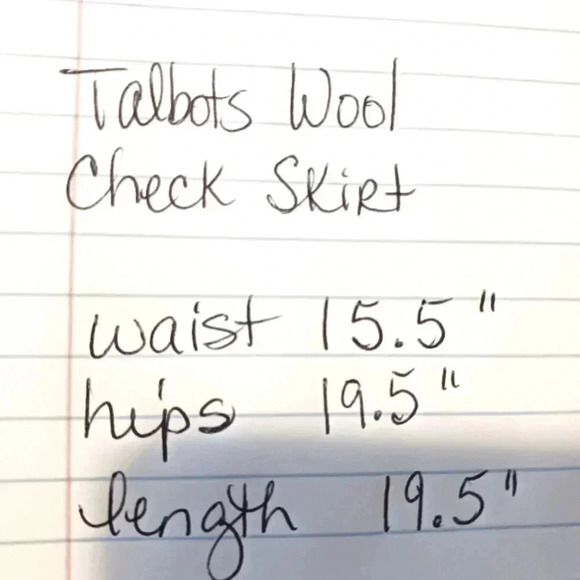 Talbots Wool
Check Skirt
waist 15.5"
hips 19.5"
length 19.5"